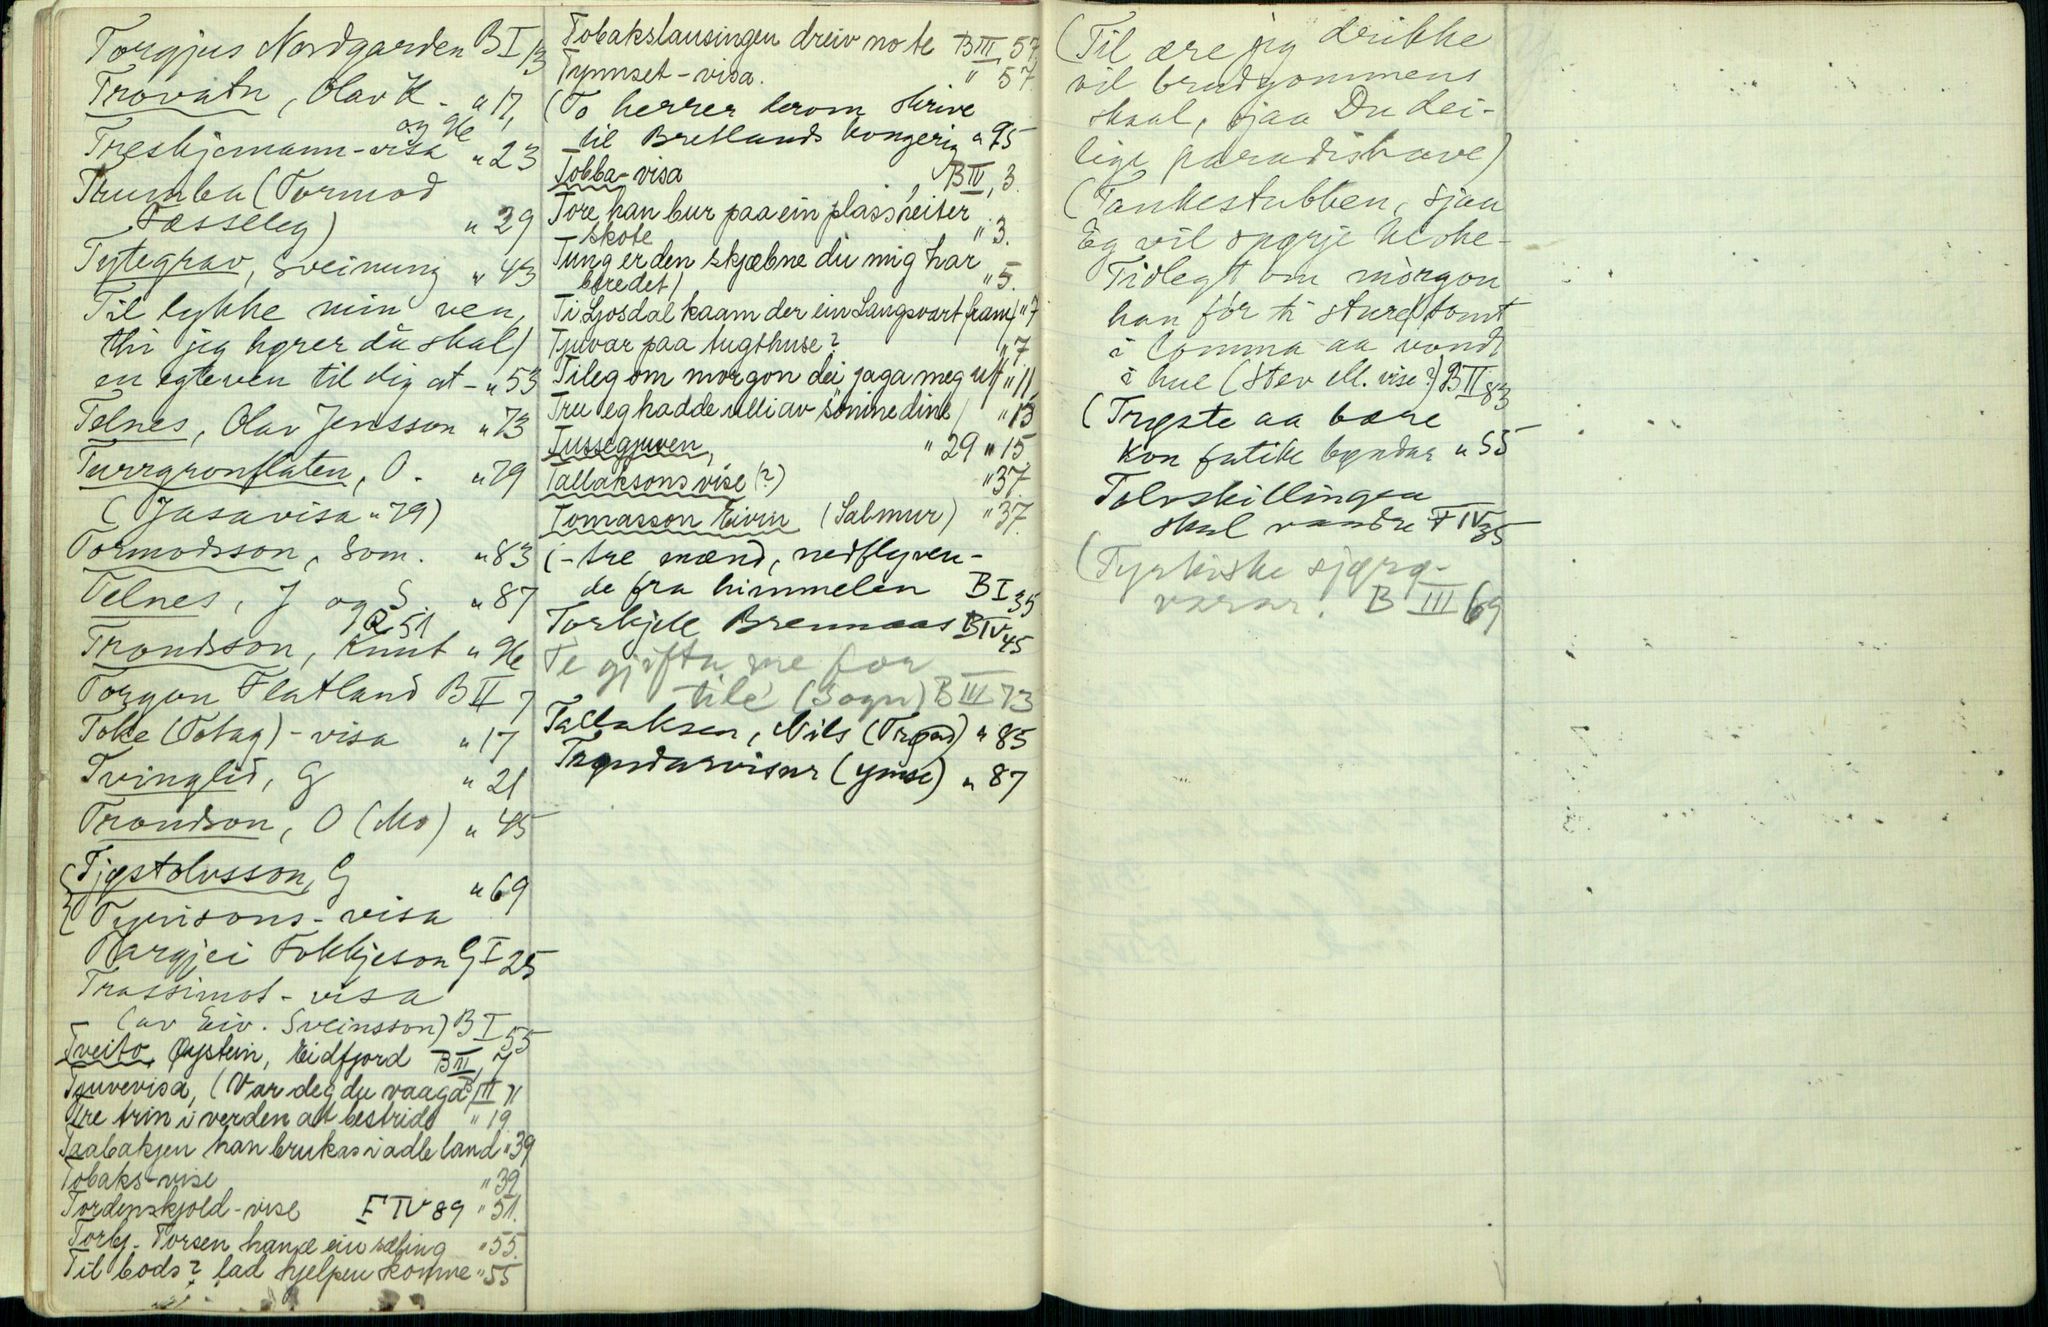 Torgjus Nordgarden B I 13
Trovatn, Olav K - " 17,
og 96
Treskjemann-visa " 23
Trumba (Tormod
Tæsseleg) " 29
Tytegrav, Sveinung " 43
Til lykke min ven,
thi jeg hører du skal /
en egteven til dig at - " 53
Telnes, Olav Jensson " 73
Turrgronflaten, O. " 79
(Jasavisa " 79)
Tormodsson, Som. " 83
Telnes, J og S " 87
og Q 51
Trondsson, Knut " 96
Torgon Flatland B II 7
Toke (Totag) - visa " 17
Tvinglid, G " 21
Trondson, O (Mo) " 45
Tjøstolvsson, G " 69
Tynisons-visa
Targjei Folkjeson G I 25
Trassimot - visa
(av Eiv. Sveinsson) B I 55
Tveito, Øystein, Eidfjord B III, 7
Tjuvevisa, (Var deg du vaaga B III 11
Tre trin i verden at bestride " 19
Taabakjen han brukas i adle land " 39
Tobaks-vise " 39
Tordenskjold-vise F IV 89 " 51.
Torbj. Torsen hange ein sæbing " 55.
Til bods? lad hjelpen komme " 55
Tobakslausingen dreiv no te B III, 57
Tynnset-visa. " 57.
(To herrer lerom skrive
til Bretlands kongerig " 95
Tobba-visa B IV, 3.
Tore han bur paa ein plass heiter
skote " 3.
Tung er den skjæbne du mig har
beredet / " 5.
Ti Ljosdal kaam der ein Langsvart fram / " 7
Tjuvar paa tugthuse? " 7
Tileg om morgon dei jaga meg ut / " 11
Tru eg hadde ulli av sönine dine / " 13
Tussegjuven, " 29 " 15
Tallaksons vise (?) " 37.
Tomasson Eivin (Salmur) " 37.
(- tre mænd, nedflyven-
de fra himmelen B I 35
Torkjell Brennaas B IV 45
Te gjifta me for
tile (Sogn) B III 73
Tallaksen, Nils (Trønd) " 85
Trøndarvisur (ymse) " 87
(Til ære jeg drikke
vil brudgommens
skaal, sjaa Du dei-
lige paradishave)
(Tankestubben, sjaa
Eg vil spørje kloke-
Tidlegt om mòrgon
han fór ti sture/tomt
i lomma aa vondt
i hue (stev ell. vise?) B II 83
(Trøste aa bære
kon fatike bøndar " 55
Tolvskillingen
skal vandre F IV 35
(Tyrkiske sjørø-
varar. B III 69